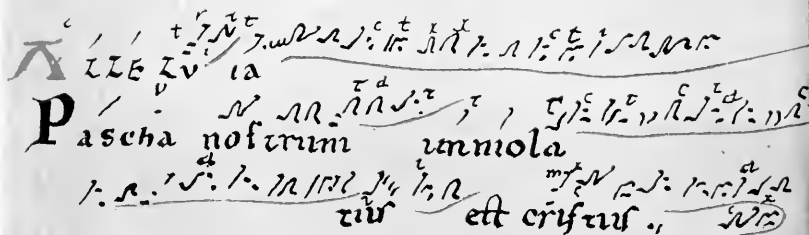 ALLELVIA
Pascha nostrum immola
tus est cristus .,